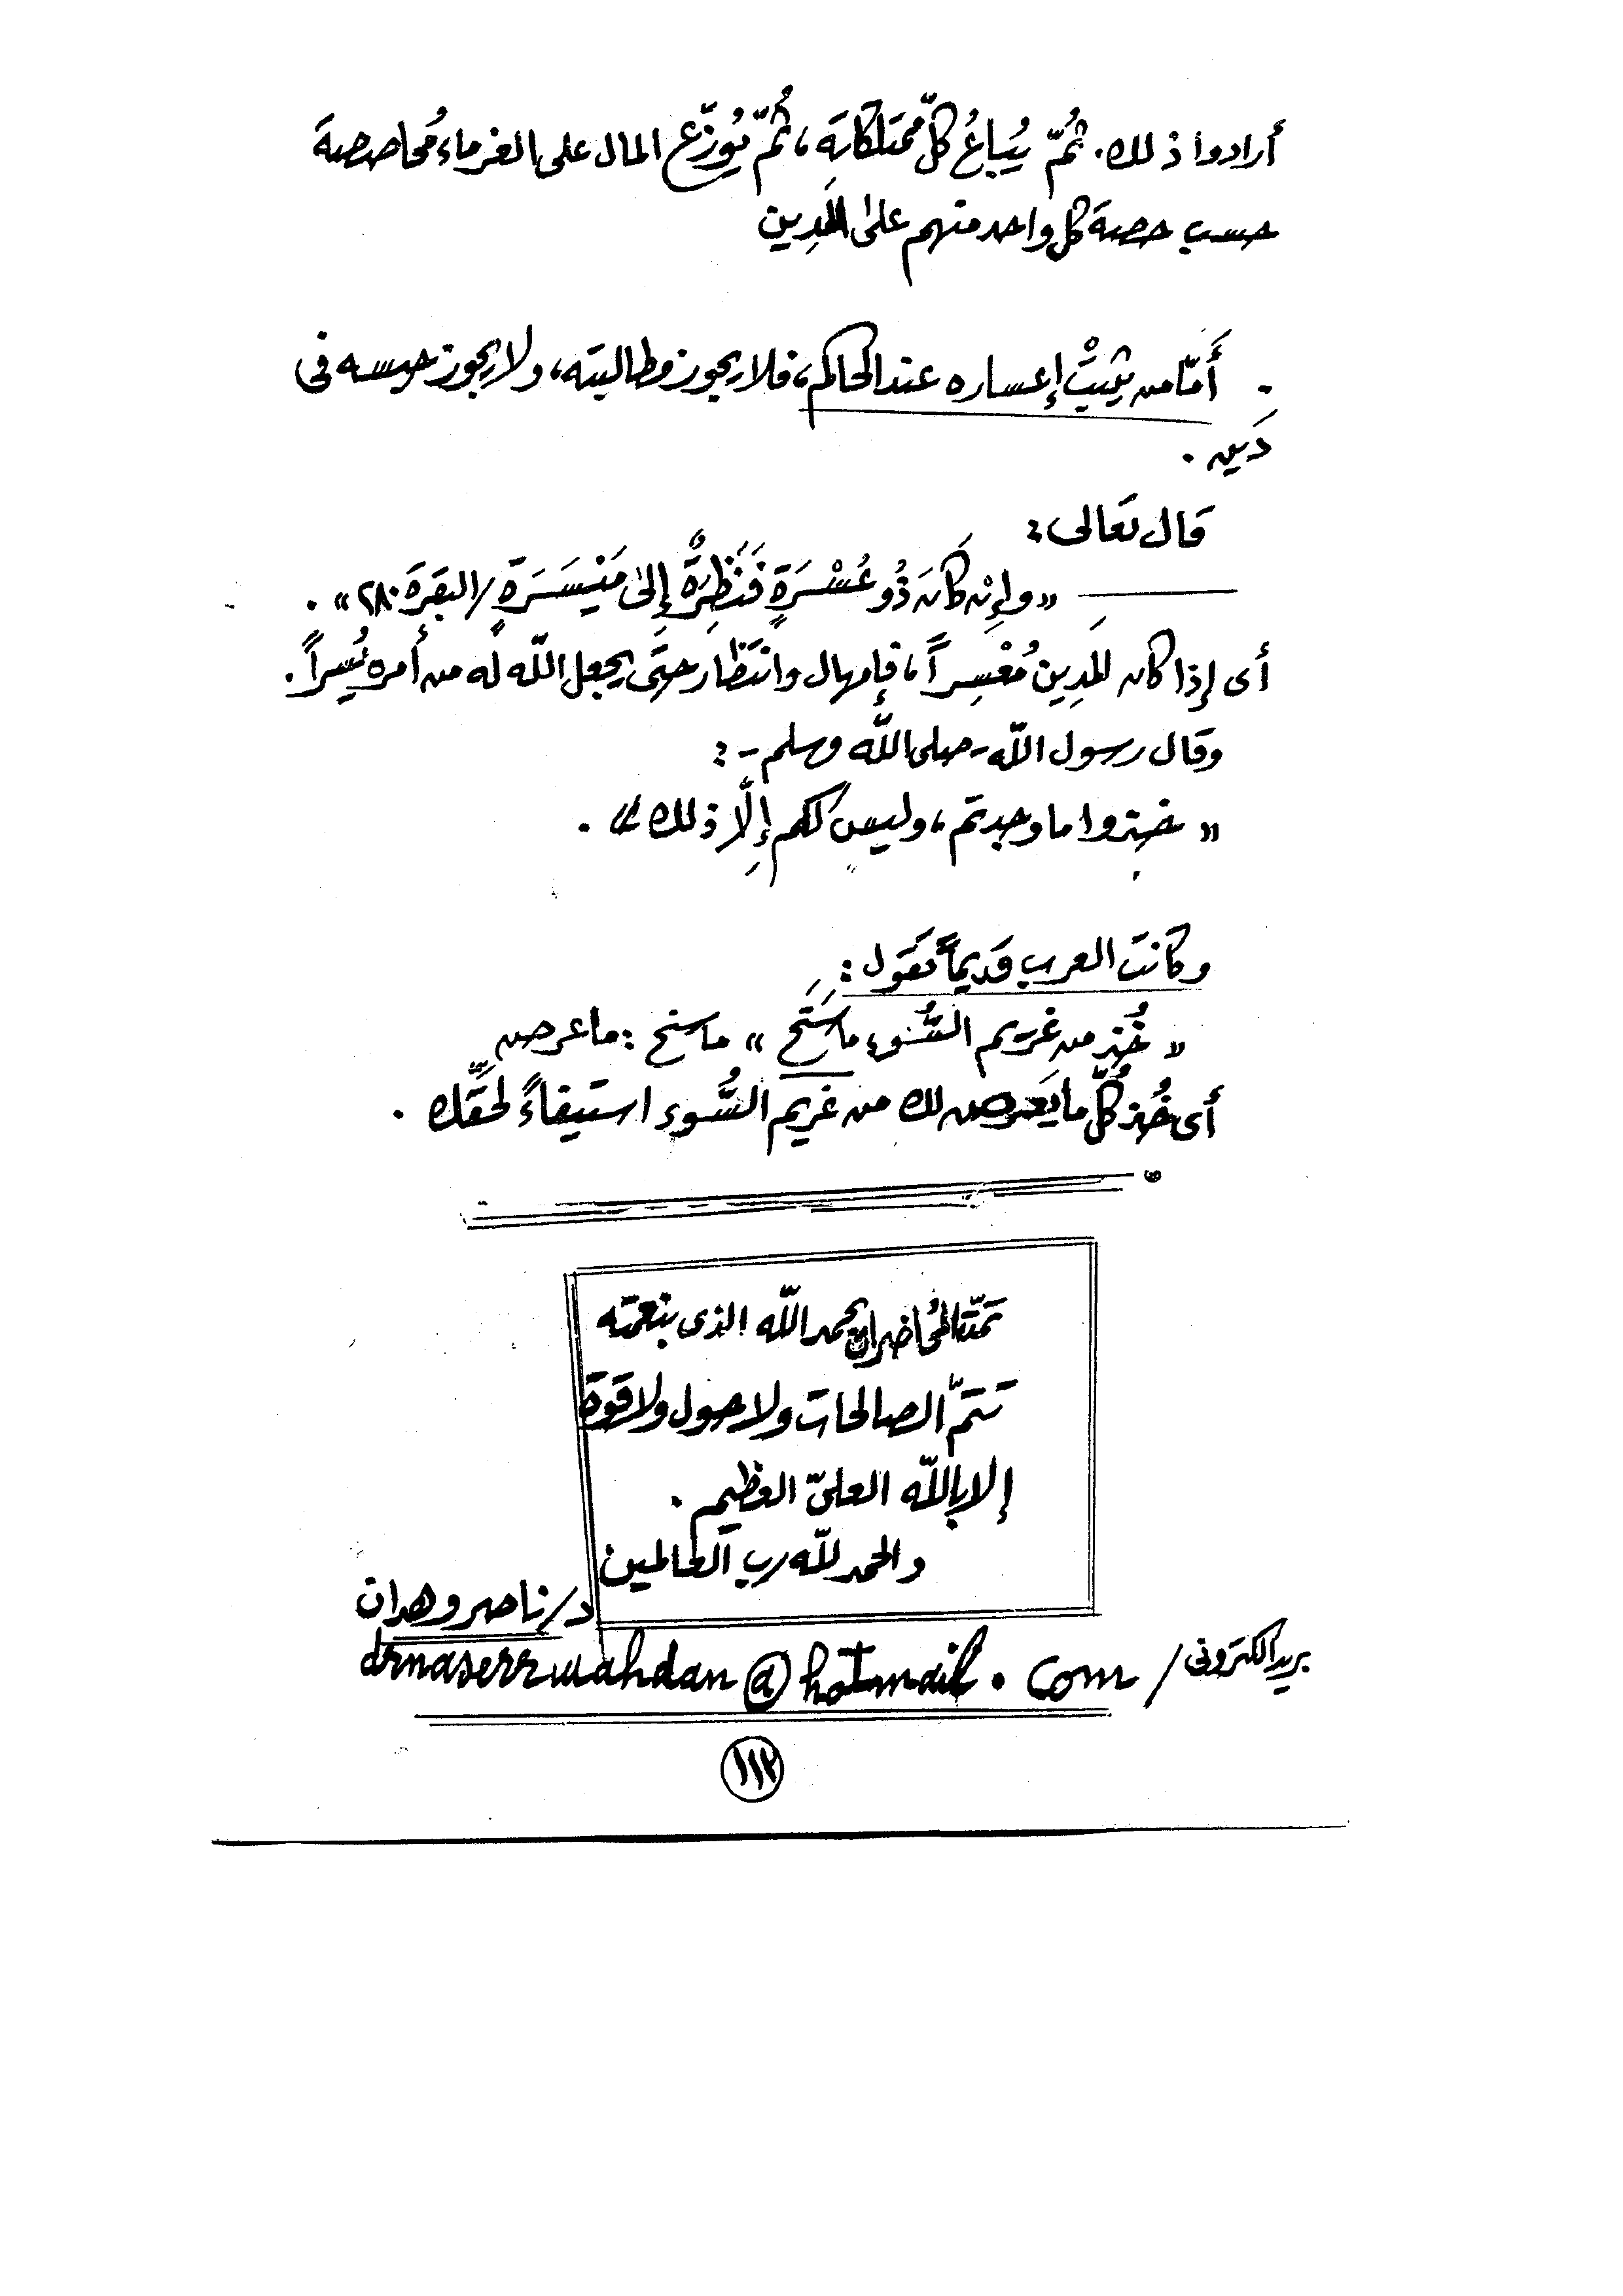 أرادوا ذلك. ثُمّ يُباعُ كلّ ممتلكاته، ثُمّ يُوزّع المال على الغرماء مُحاصصة
حسب حصة كل واحد منهم على المَدِين
. أَمّا من يثبتْ إعساره عند الحاكم، فلا يجوز مطالبته، ولا يجوز حبسه فى
دَين .
قال تعالى:
« وإِنْ كَانَ ذُو عُسْرَةٍ فَنَظِرَةٌ إِلىٰ مَيْسَرَةٍ / البقرة ٢٨٠ » .
أى إذا كان المَدِين مُعْسِراً، فإمهال وانتظار حتى يجعل اللّه له من أمره يُسراً .
وقال رسول اللّه - صلى اللّه وسلم - :
« خذوا ما وجدتم، وليس لكم إلّا ذلك » .
وكانت العرب قديماً تقول :
« خُذ من غريم السُّوء ما سَنَح » ما سنح : ما عرض
أى خُذ كُلّ ما يَعرض لك من غريم السُّوء استيفاءً لحقّك .
تمّت المُحاضرات بحمد اللّه الذى بنعمته
تتمّ الصالحات ولا حول ولا قوة
إلا باللّه العلىّ العظيم .
والحمد للّه رب العالمين
د/ ناصر وهدان
بريد الكترونى / drnaserrwahdan@hotmail.com
١١٢